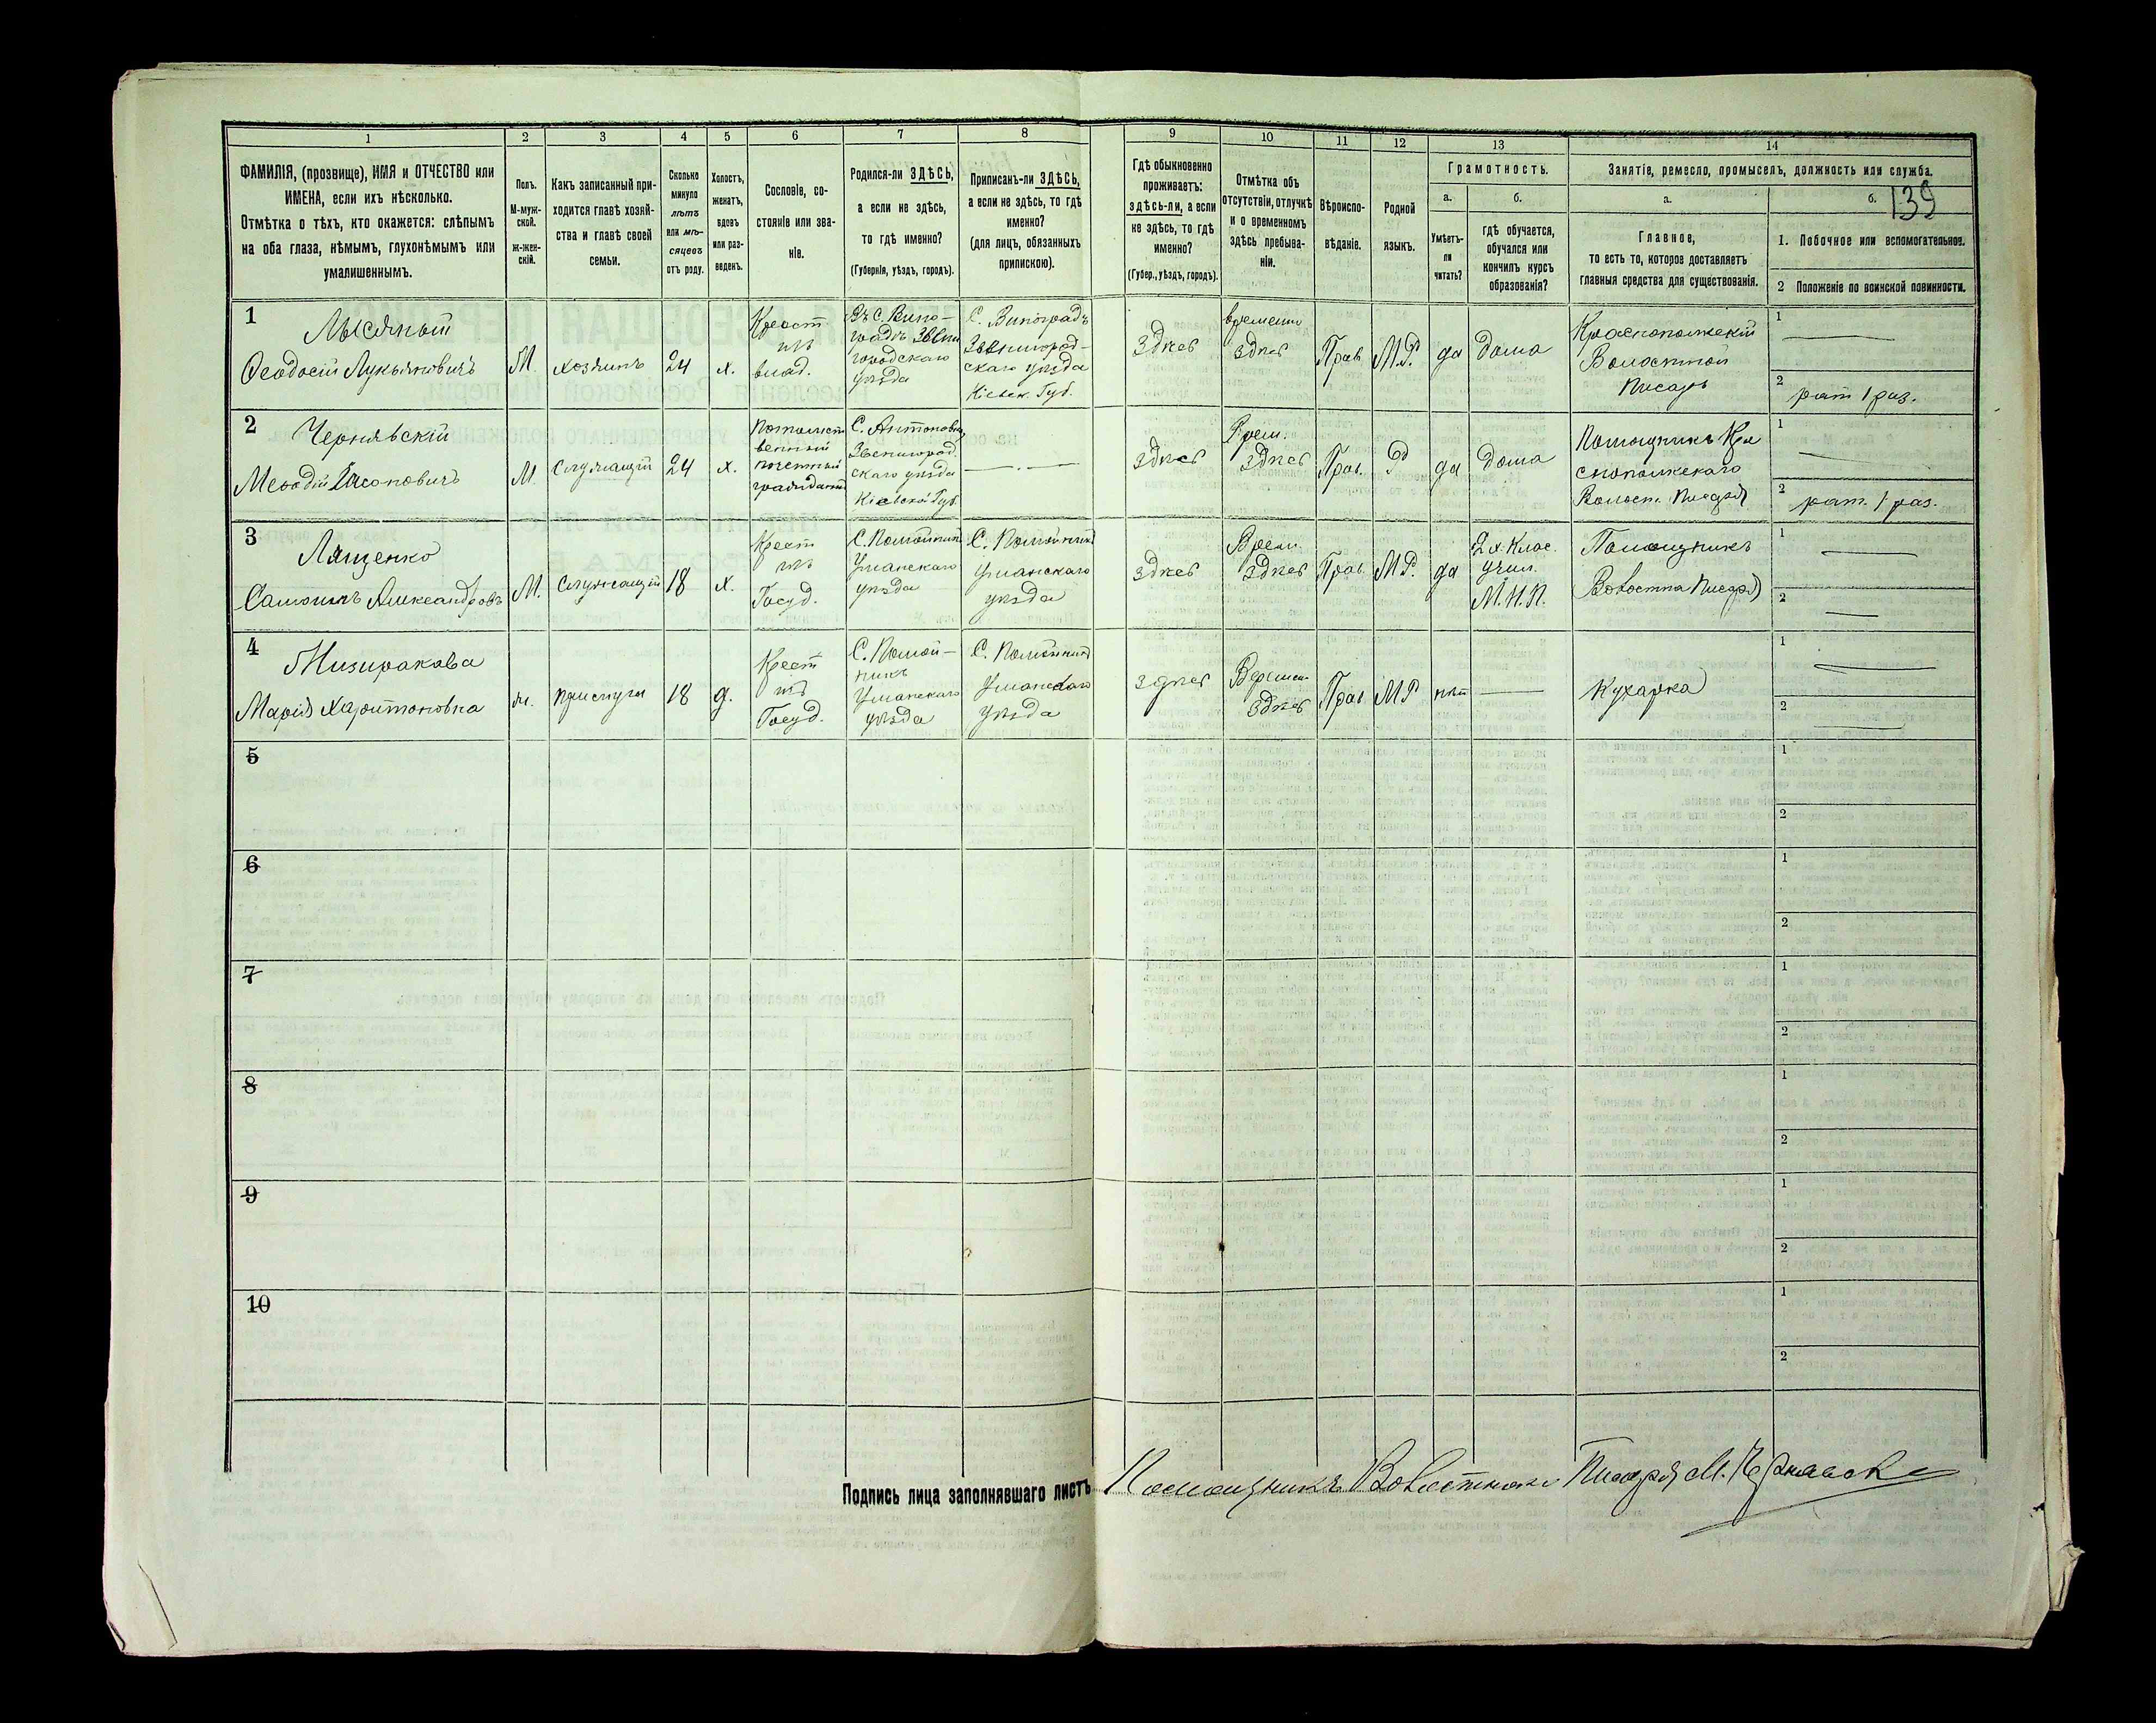 1 2 3 4 5 6 7 8 9 10 11 12 13 14
ФАМИЛІЯ, (прозвище), ИМЯ и ОТЧЕСТВО или
ИМЕНА, если ихъ нѣсколько.
Отмѣтка о тѣхъ, кто окажется: слѣпымъ
на оба глаза, нѣмымъ, глухонѣмымъ или
умалишеннымъ.
Полъ.
М-муж-
ской.
ж-жен-
скій.
Какъ записанный при-
ходится главѣ хозяй-
ства и главѣ своей
семьи.
Сколько
минуло
лѣтъ
или мѣ-
сяцевъ
отъ роду.
Холостъ,
женатъ,
вдовъ
или раз-
веденъ.
Сословіе, со-
стояніе или зва-
ніе.
Родился-ли ЗДѢСЬ,
а если не здѣсь,
то гдѣ именно?
(Губернія, уѣздъ, городъ).
Приписанъ-ли ЗДѢСЬ,
а если не здѣсь, то гдѣ
именно?
(для лицъ, обязанныхъ
припискою).
Гдѣ обыкновенно
проживаетъ:
здѣсь-ли, а если
не здѣсь, то гдѣ
именно?
(Губер., уѣздъ, городъ).
Отмѣтка объ
отсутствіи, отлучкѣ
и о временномъ
здѣсь пребыва-
ніи.
Вѣроиспо-
вѣданіе.
Родной
языкъ.
Грамотность.
а.
Умѣетъ-
ли
читать?
б.
гдѣ обучается,
обучался или
кончилъ курсъ
образованія?
Занятіе, ремесло, промыселъ, должность или служба.
а.
Главное,
то есть то, которое доставляетъ
главныя средства для существованія.
б.
139
1. Побочное или вспомогательное.
2 Положеніе по воинской повинности.
1
Лысяный
Ѳеодосій Лукьяновичъ
М.
хозяинъ
24
х.
Крест.
изъ
влад.
Въ С. Вино-
градѣ Звени
городскаго
уѣзда
С. Виноградъ
Звенигород-
скаго уѣзда
Кіевск. Губ.
Здѣсь
временно
здѣсь
Прав.
М.Р.
да
дома
Краснопольскій
Волостной
Писарь
1
2
рат 1 раз.
2
Чернявскій
Меѳодій Іасоновичъ
М.
Служащій
24
х.
Потомст
венный
почетный
гражданинъ
С. Антоновка
Звенигород.
скаго уѣзда
Кіевской Губ.
здѣсь
Врем.
здѣсь
Прав.
Р
да
дома
Помощникъ Кра
снопольскаго
Волост. Писаря
1
2
рат. 1 раз.
3
Лященко
Самоилъ Александровъ
М.
Служащій
18
х.
Крест
изъ
Госуд.
С. Помойникъ
Уманскаго
уѣзда
С. Помойникъ
Уманскаго
уѣзда
здѣсь
Врем.
здѣсь
Прав.
М.Р.
да
2 х. Клас.
учил.
М.Н.П.
Помощникъ
Волостна Писаря
1
2
4
Мизиракова
Марія Харитоновна
ж.
прислуга
18
д.
Крест
изъ
Госуд.
С. Помой-
никъ
Уманскаго
уѣзда
С. Помойникъ
Уманскаго
уѣзда
здѣсь
Времен.
здѣсь
Прав
М Р
нѣт
Кухарка
1
2
5
1
2
6
1
2
7
1
2
8
1
2
9
1
2
10
1
2
Подпись лица заполнявшаго листъ Помощникъ Волостнаго Писаря М. Чернявскі